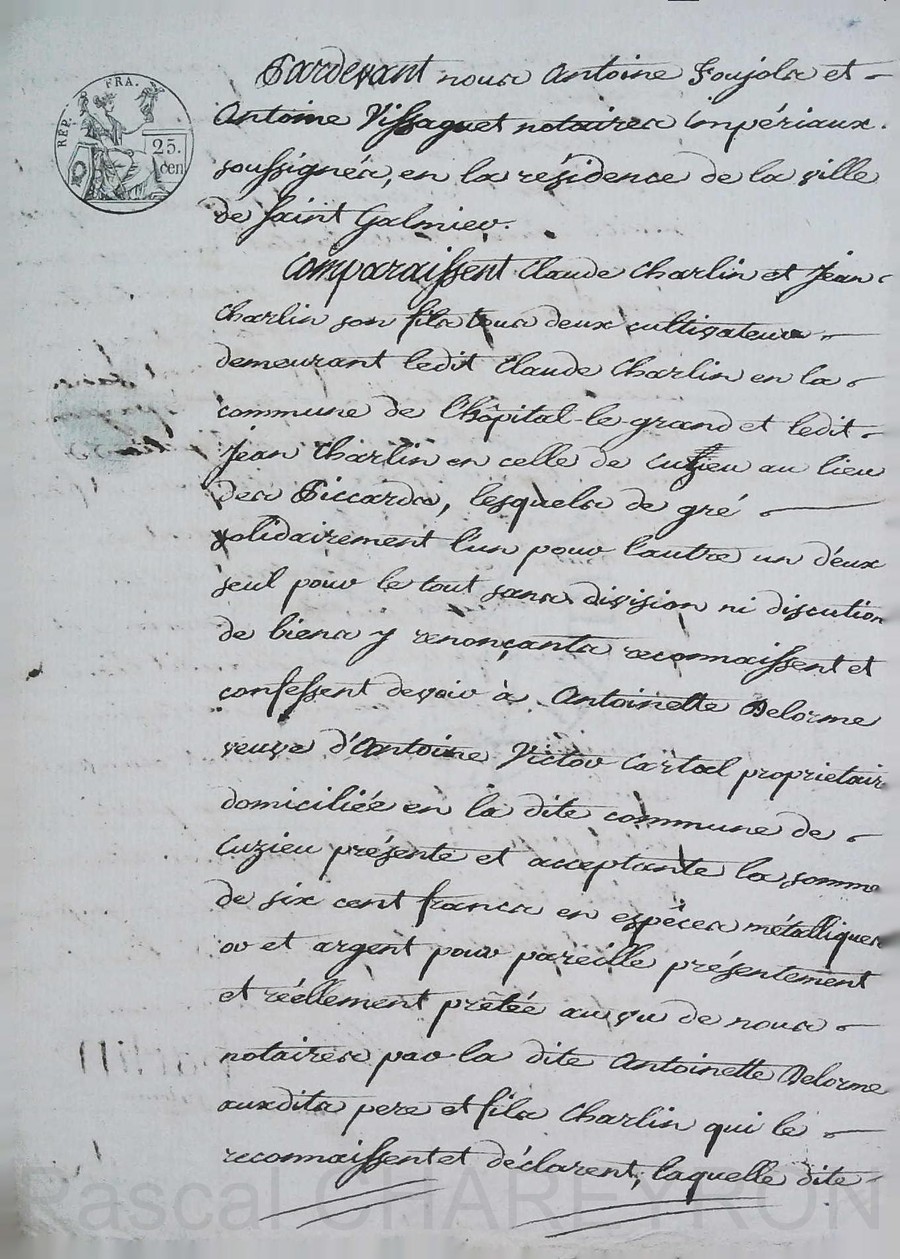 REP. FRA.
25.
cen
Pardevant nous Antoine Soujols et
Antoine Vissaguet notaires impériaux
soussignés, en la résidence de la ville
de Saint Galmier.
Comparaissent Claude Charlin et Jean
Charlin son fils tous deux cultivateurs
demeurant ledit Claude Charlin en la
commune de l'hôpital-le-grand et ledit
Jean Charlin en celle de Cuzieu au lieu
des Piccards, lesquels de gré
solidairement l'un pour l'autre un d'eux
seul pour le tout sans division ni discution
de biens y renonçants reconnaissent et
confessent devoir à Antoinette Delorme
veuve d'Antoine Victor Cartal proprietaire
domiciliée en la dite commune de
Cuzieu présente et acceptante la somme
de six cent francs en espèces métalliques
or et argent pour pareille présentement
et réellement prêtée au vu de nous
notaires par la dite Antoinette Delorme
auxdits pere et fils Charlin qui le
reconnaissent et déclarent, laquelle dite
Rascal CHAREYRON